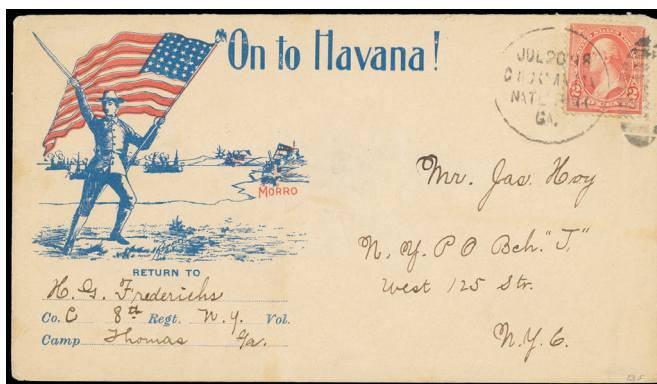 On to Havana!
JUL 20 98
NAT'L
GA.
MORRO
Mr. Jas. Hoy
N. Y. P O Bch. "J."
West 125 Str.
N.Y.C.
RETURN TO
H. G. Frederichs
Co. C 8th Regt. N.Y. Vol.
Camp Thomas Ga.
135